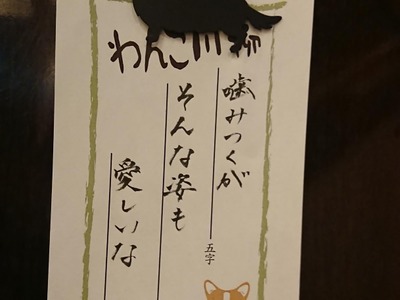 わんこ川柳
噛みつくが
五字
そんな姿も
愛しいな